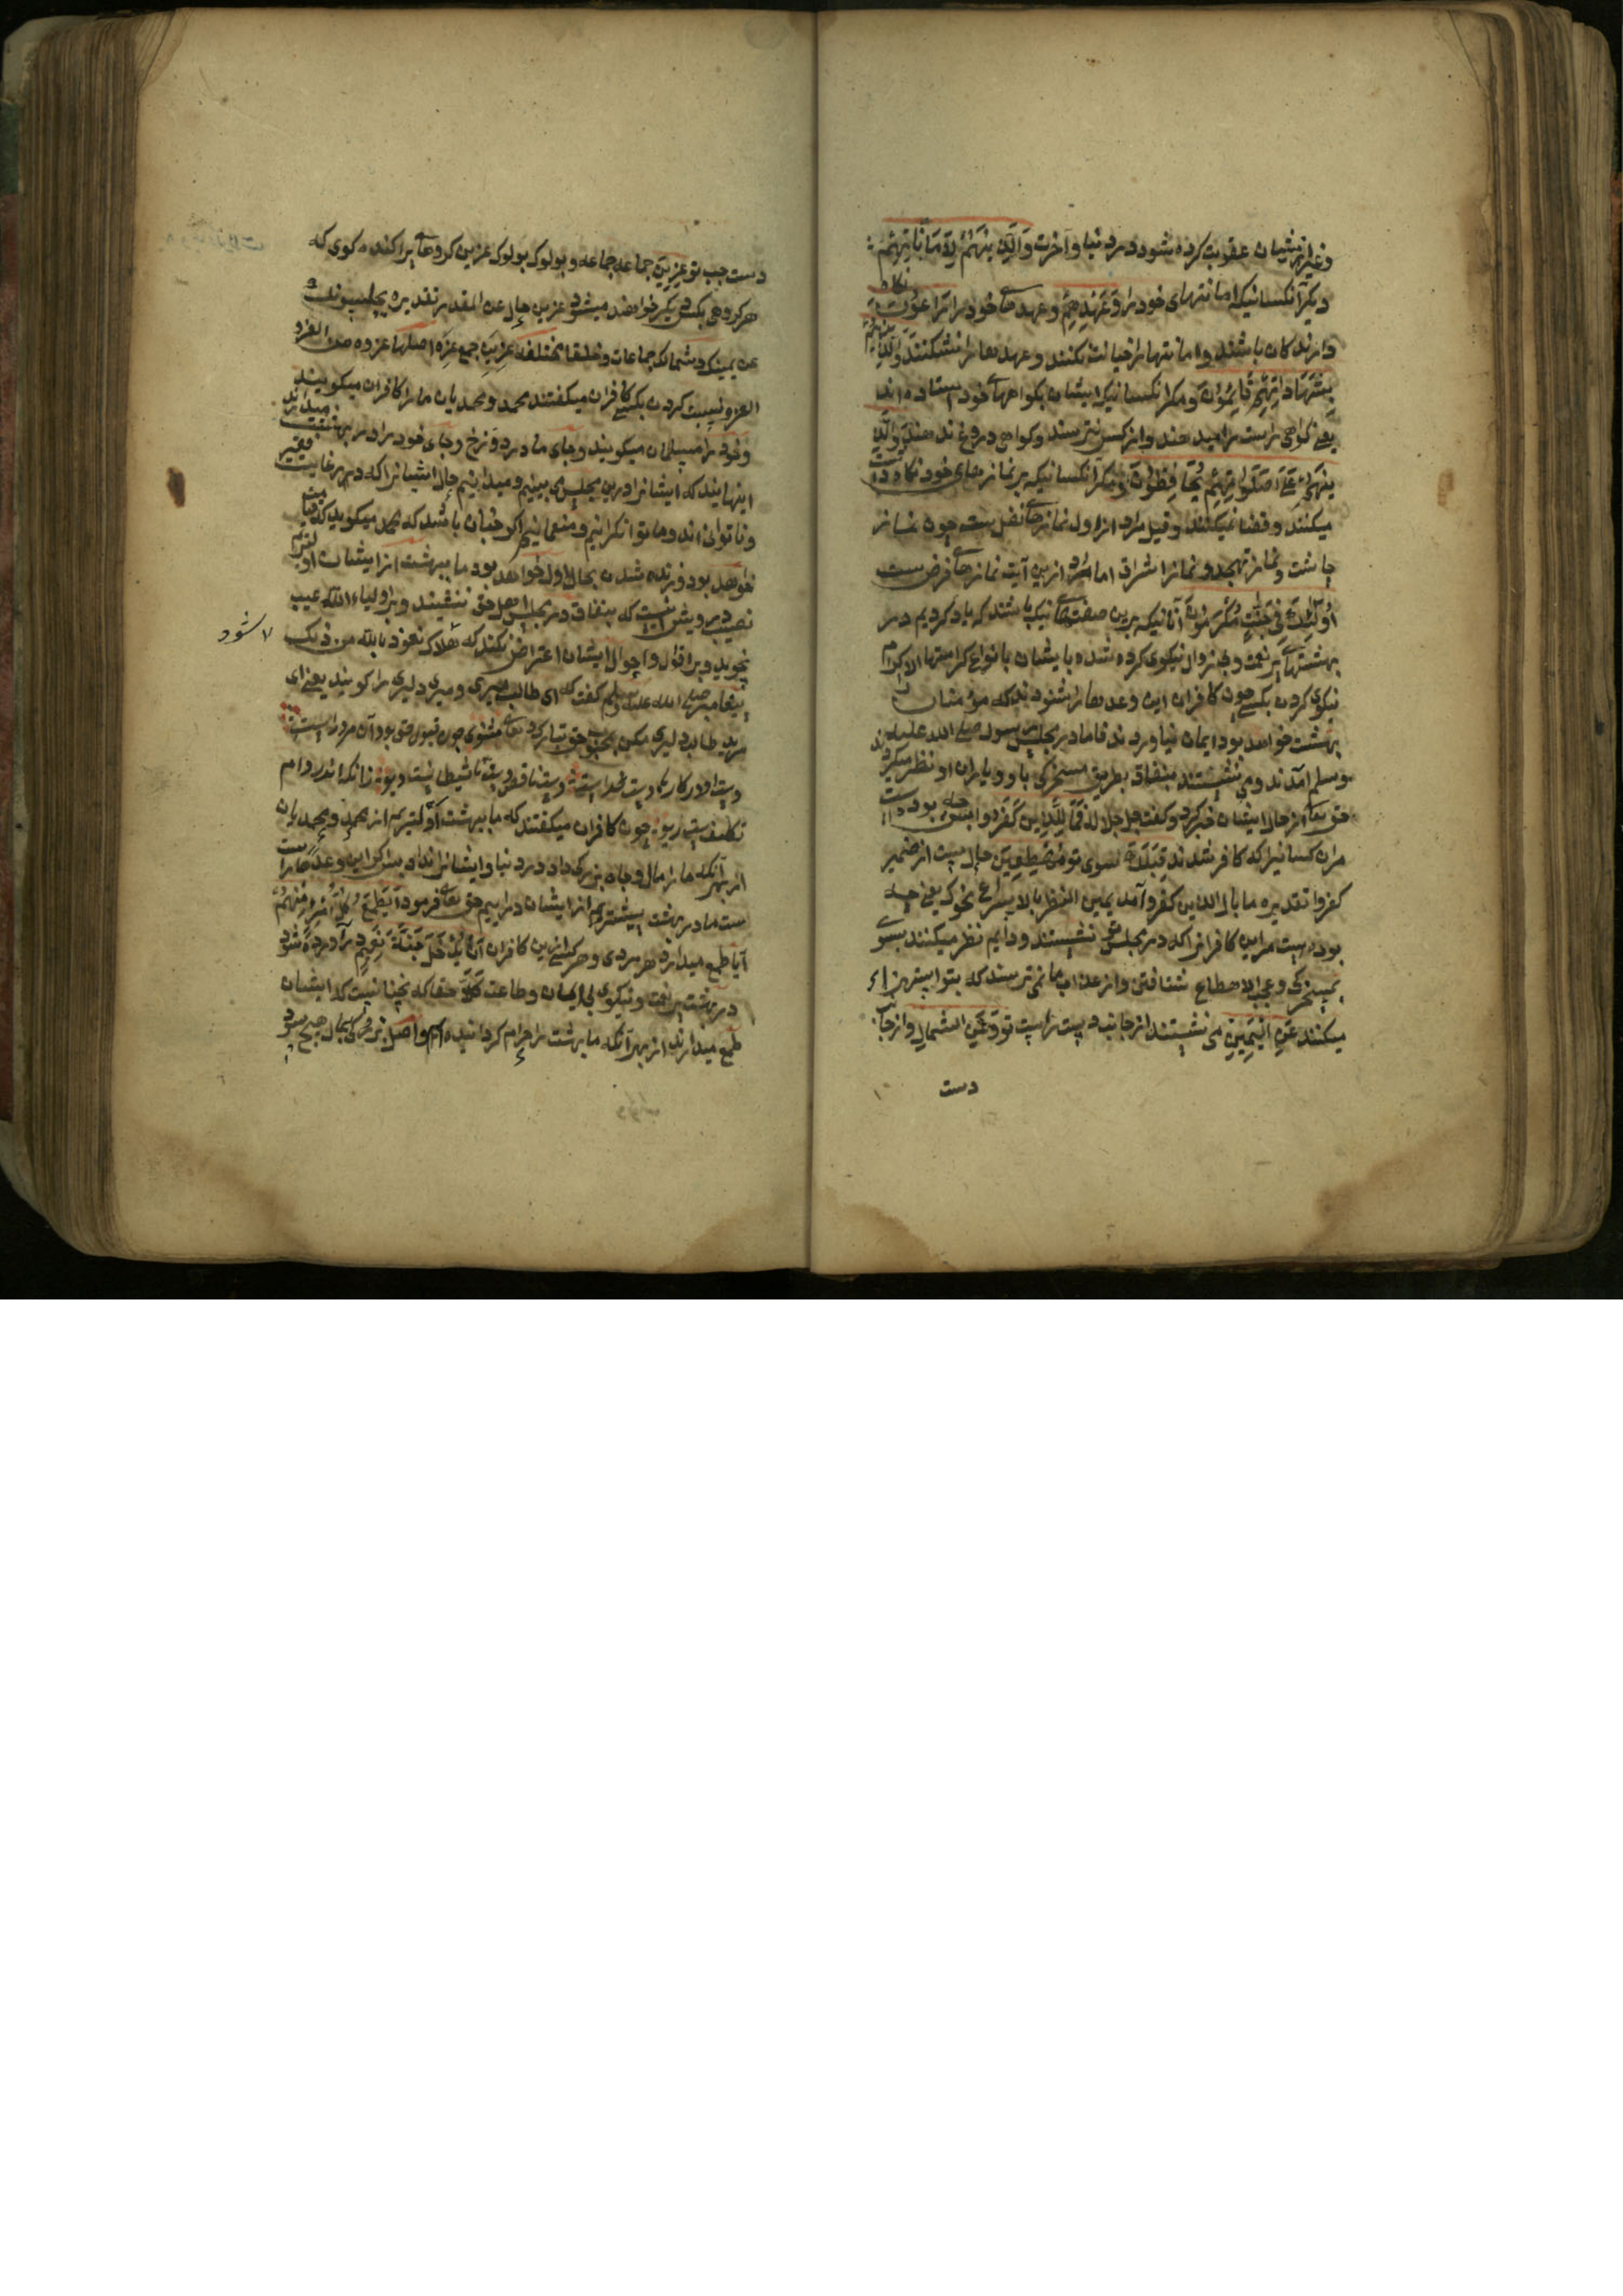 وغیر ازیشان عقوبت کرده شود در دنیا و آخرت وَالَّذِینَ هُمْ لِاَمَانَاتِهِمْ
دیگر آنکسانیکه امانتهای خود را وَعَهْدِهِمْ وعهدهای خود را رَاعُوْنَ نکاه
دارندکان باشند و امانتها را خیانت نکنند وعهدها را نشکنند وَالَّذِینَ هُمْ
بِشَهَادَاتِهِمْ قَائِمُوْنَ ومکر آنکسانیکه ایشان بکواهیهای خود استاده اند
یعنی کواهی راست را میدهند و از کس نترسند وکواهی دروغ ندهند وَالَّذِینَ
هُمْ عَلَی صَلَوَاتِهِمْ یُحَافِظُوْنَ ومکر آنکسانیکه بر نمازهای خود نکاه داشت
میکنند وقضا نمیکنند وقیل مراد از اول نمازهای نفل ست چون نماز
چاشت ونماز تهجد ونماز اشراق اما مراد ازین آیت نمازهای فرض ست
اُولٰئِکَ فِی جَنَّتٍ مُکْرَمُوْنَ آنانیکه برین صفتهای نیک باشند که یاد کردیم در
بهشتهای پر نعمت وبی زوال نیکوی کرده شده بایشان بانواع کرامتها الاکرام
نیکوی کردن بکسی چون کافران این وعدها را شنودند که مؤمنان را
بهشت خواهد بود ایمان نیاوردند فاما در مجلس رسول صلی الله علیه
وسلم آمدند ومی نشستند بنفاق بطریق مسخرکی باو ویاران او نظر میکردند
حق تعالی از حال ایشان خبر کرد وکفت جل جلاله فَمَالِ الَّذِینَ کَفَرُوا پس چه بوده است
مران کسانیرا که کافر شدند قِبَلَکَ سوی تو مُهْطِعِینَ حال ست از ضمیر
کفروا تقدیره ما بال الذین کفروا آمدیمین النظر بالاسراع نحوک یعنی چه
بوده ست مراین کافرانرا که در مجلس تو نشستند ودایم نظر میکنند بسوی
تو بمسخرکی وعجب الاهطاع شتافتن واز عذاب ما نمی ترسند که بتو استهزاء
میکنند عَنِ الْیَمِینِ می نشستند از جانب دست راست تو وَعَنِ الشِّمَالِ واز جانب
دست
دست چپ تو عِزِینَ جماعه جماعه وبولوک بولوک عزین کروهای پراکنده کوی که
هر کروهی بکس دیکر خوانده میشود عزین حال عن المقدر تقدیره یجلسون
عن یمینک وشمالک جماعات وخلقا مختلفه عزین جمع عزه اصلها عزوه من العزو
العزو نسبت کردن بکسی کافران میکفتند محمد ومحمدیان ما را کافران میکویند
وخود را مسلمان میکویند وجای ما در دوزخ وجای خود را در بهشت میدانند
اینهایند که ایشانرا درین مجلس می بینیم ومیدانیم حال ایشانرا که در غایت فقیر
وناتوانی اند وما توانکرانیم ومنعمانیم اکر چنان باشد که محمد میکوید که قیامت
خواهد بود وزنده شدن بحال اول خواهد بود ما ببهشت از ایشان اولیتریم
نصیب درویش است که بنفاق در مجلس اهل حق ننشیند وبر اولیاء الله عیب
نجوید وبر اقوال واحوال ایشان اعتراض نکند که هلاک نعوذ بالله من ذلک
شود
پیغامبر صلی الله علیه وسلم کفت که ای طالب میری ومیری دلیری را کویند یعنی ای
مرید طالب دلیری مکن بمحبوب حق تبارک وتعالی مثنوی چون قبول حق بود آن مرد راست
دست او در کارها دست خداست دست ناقص دست شیطانست ودیو زانکه اندر دام
تکلیفست وریو چون کافران میکفتند که ما ببهشت اولیتریم از محمد ومحمدیان
از بهر آنکه ما را مال وجاه بزرکی داد در دنیا وایشانرا نداد پس کر این وعدها راست
ست ما در بهشت پیشتریم از ایشان درآییم حق تعالی فرمود اَیَطْمَعُ کُلُّ امْرِئٍ مِنْهُمْ
آیا طمع میدارد هر مردی وهر کسی ازین کافران اَنْ یُدْخَلَ جَنَّةَ نَعِیمٍ درآورده شود
در بهشت پر نعمت ونیکوی بی ایمان وطاعت کَلَّا حقا که نچنانست که ایشان
طمع میدارند از بهر آنکه ما بهشت را حرام کردانیده ایم واصل بزرکی بمال هیچ سود